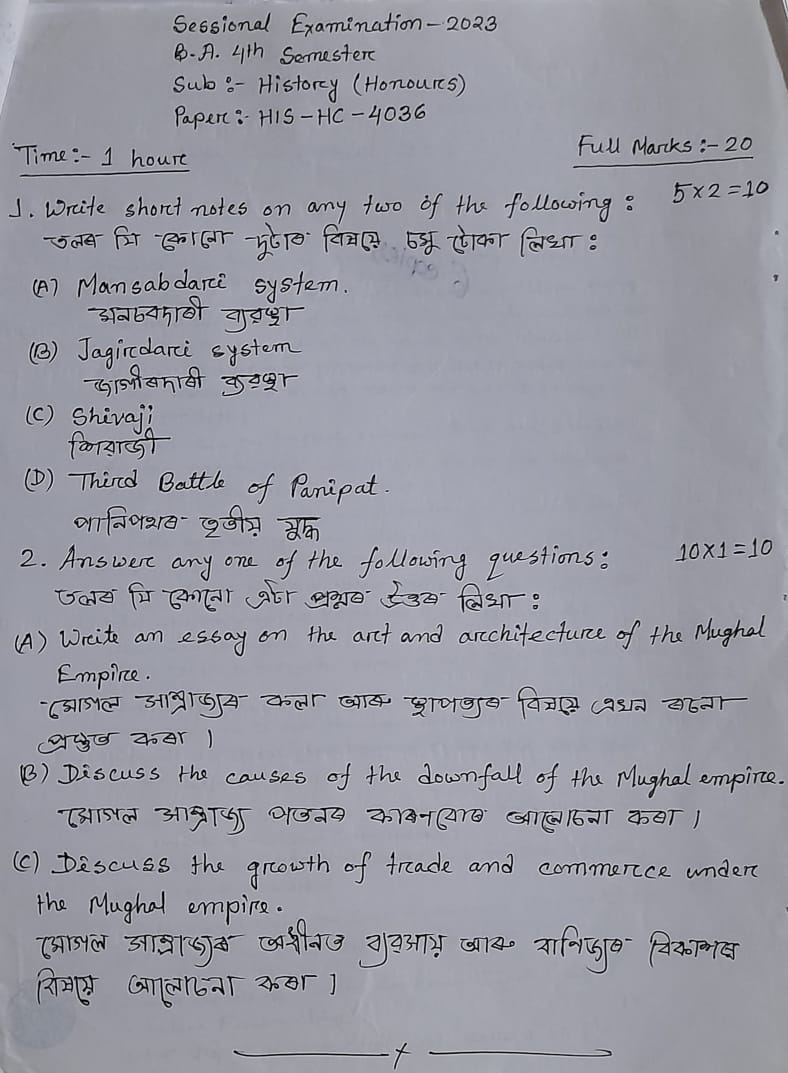 Sessional Examination - 2023
B.A. 4th Semester
Sub :- History (Honours)
Paper :- HIS - HC - 4036
Time :- 1 hour
Full Marks :- 20
1. Write short notes on any two of the following : 5 x 2 = 10
তলৰ যি কোনো দুটাৰ বিষয়ে চমু টোকা লিখা :
(A) Mansabdari system.
মনচবদাৰী ব্যৱস্থা
(B) Jagirdari system
জাগীৰদাৰী ব্যৱস্থা
(C) Shivaji
শিৱাজী
(D) Third Battle of Panipat.
পানিপথৰ তৃতীয় যুদ্ধ
2. Answer any one of the following questions : 10 x 1 = 10
তলৰ যি কোনো এটা প্ৰশ্নৰ উত্তৰ লিখা :
(A) Write an essay on the art and architecture of the Mughal
Empire.
মোগল সাম্ৰাজ্যৰ কলা আৰু স্থাপত্যৰ বিষয়ে এখন ৰচনা
প্ৰস্তুত কৰা ।
(B) Discuss the causes of the downfall of the Mughal empire.
মোগল সাম্ৰাজ্য পতনৰ কাৰণবোৰ আলোচনা কৰা ।
(C) Discuss the growth of trade and commerce under
the Mughal empire.
মোগল সাম্ৰাজ্যৰ অধীনত ব্যৱসায় আৰু বাণিজ্যৰ বিকাশৰ
বিষয়ে আলোচনা কৰা ।